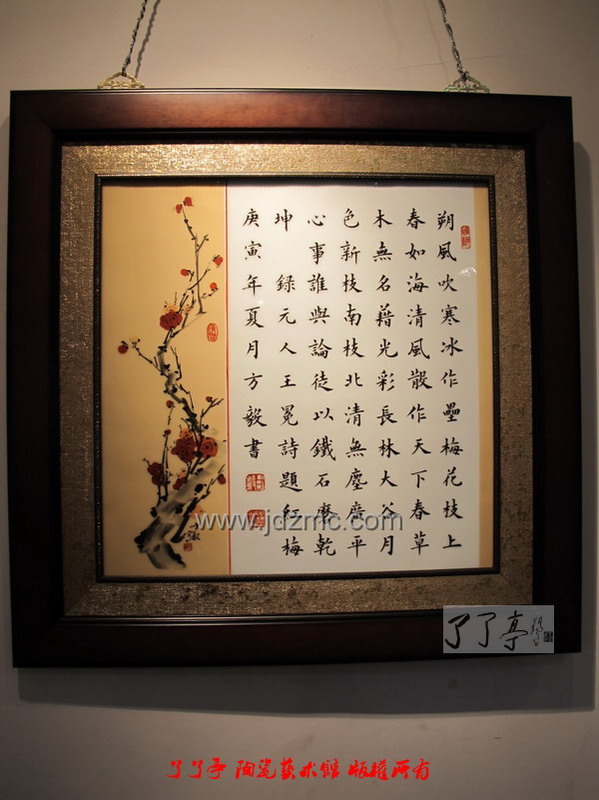 朔風吹寒冰作壘梅花枝上
春如海清風散作天下春草
木無名藉光彩長林大谷月
色新枝南枝北清無塵廣平
心事誰與論徒以鐵石磨乾
坤 録元人王冕詩題紅梅
庚寅年夏月方毅書
www.jdzmc.com
了了亭
了了亭 陶瓷藝术館 版權所有